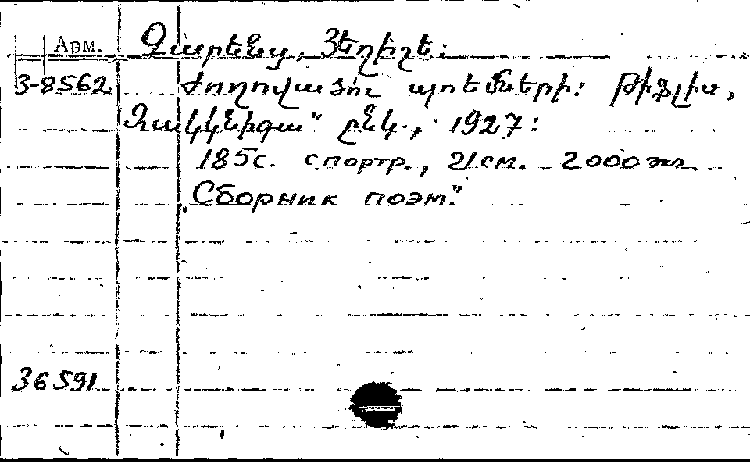 Арм.
Չարենց, Յեղիշե:
3-8562
Ժողովածու պոեմների: Թիֆլիս,
Զակկնիգա" ընկ., 1927:
185с. с портр., 21см. 2000 экз
„Сборник поэм."
36591